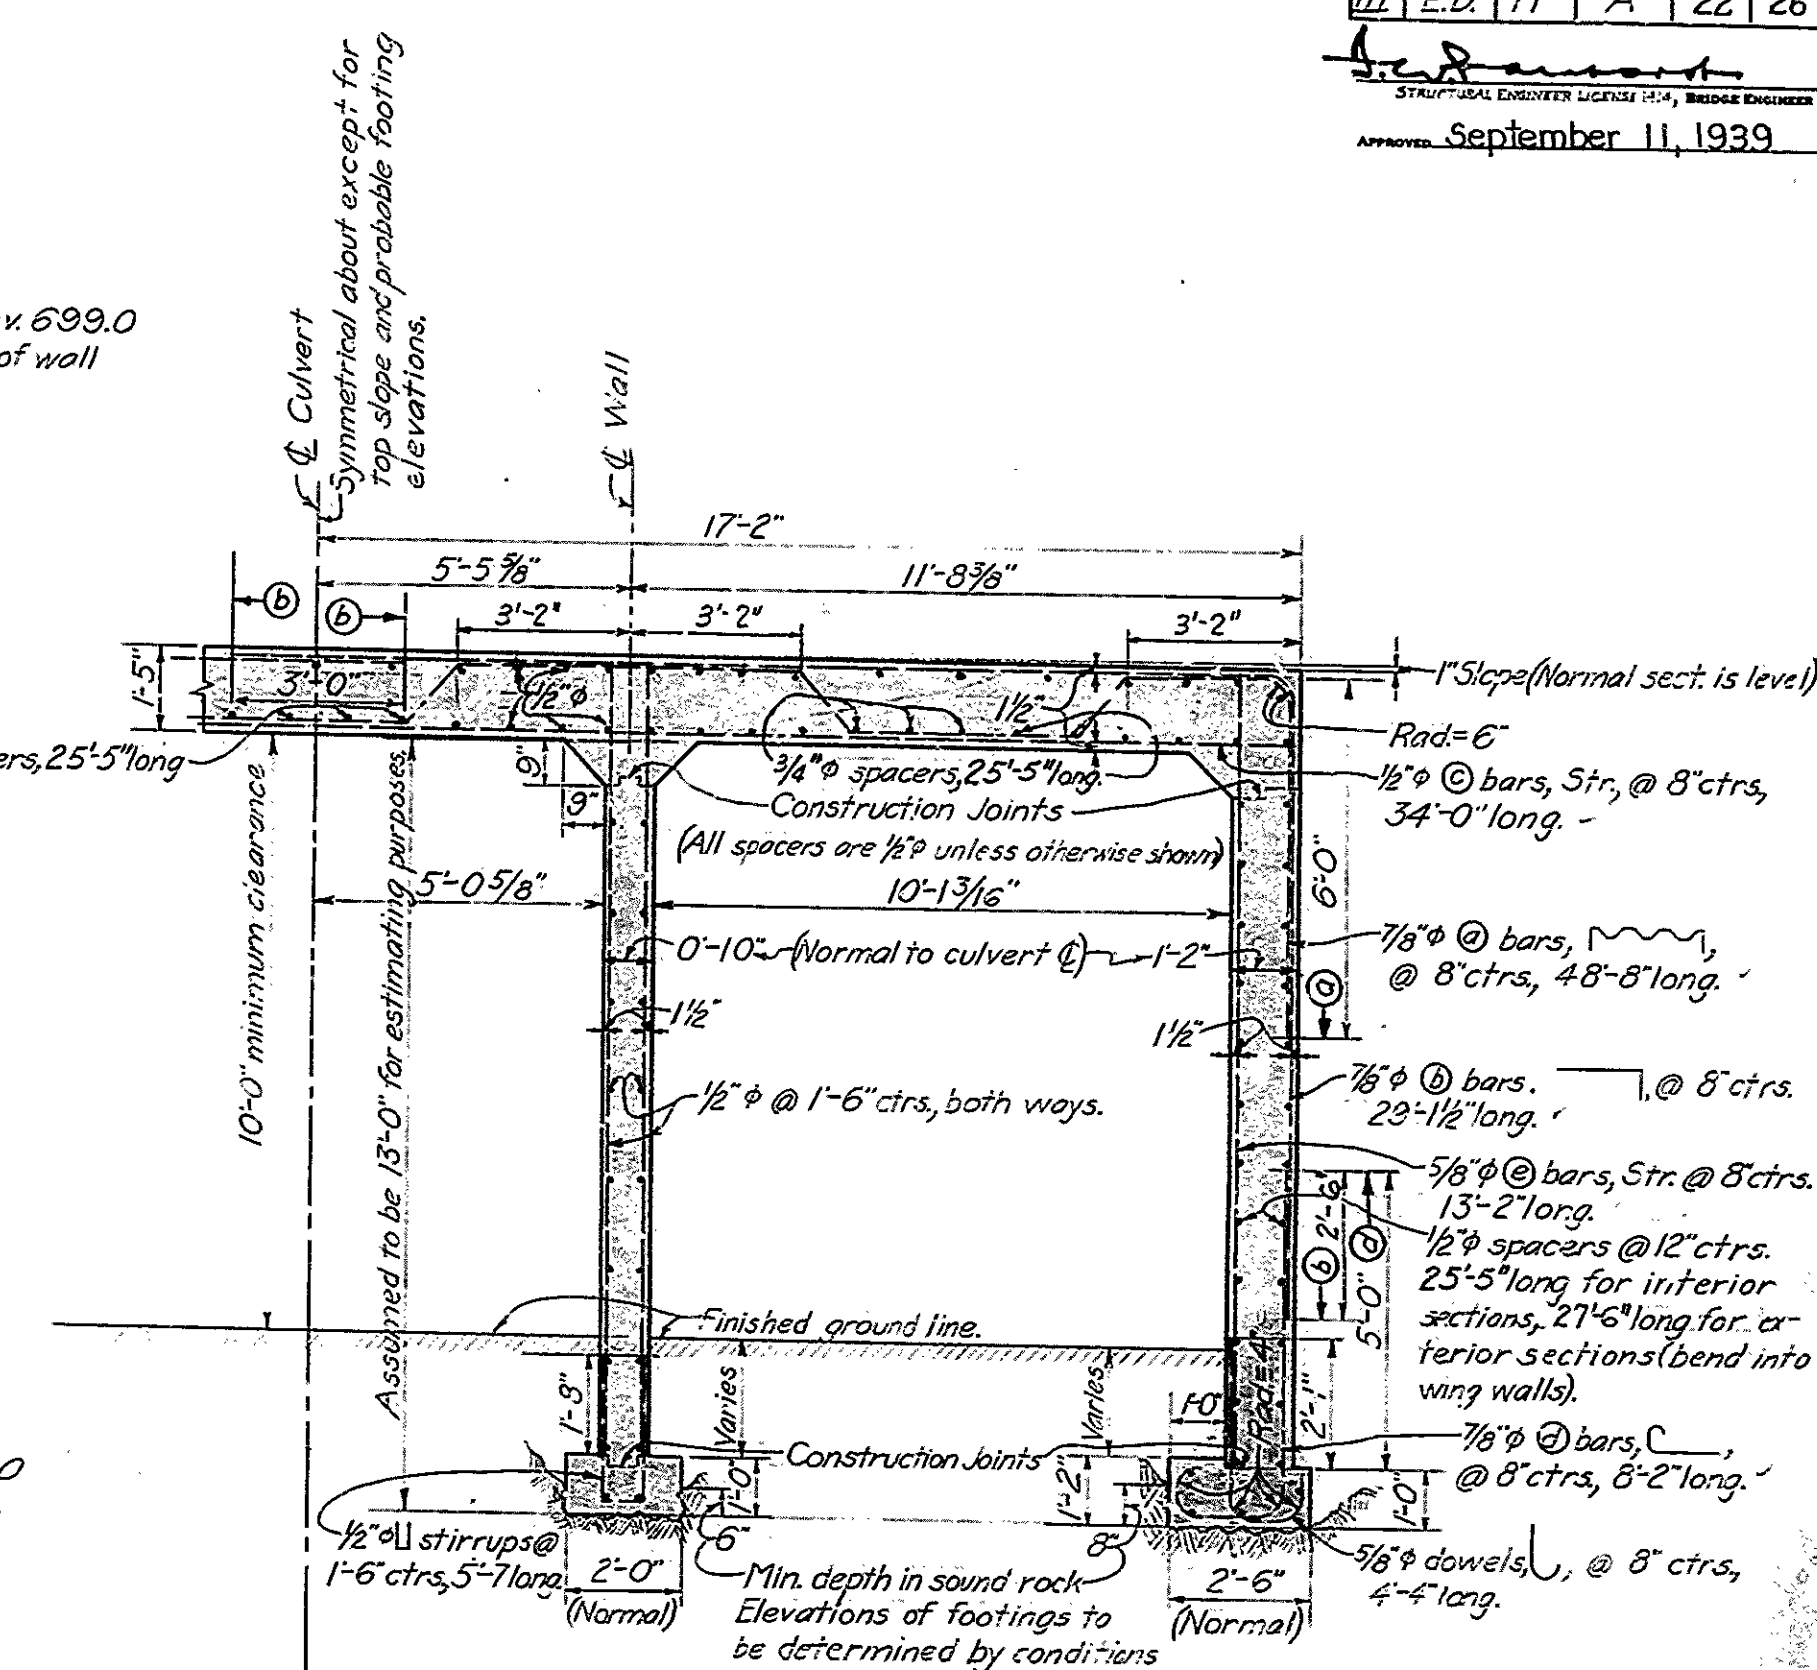 III E.D. 11 A 22 26
STRUCTURAL ENGINEER LICENSE BRIDGE ENGINEER
APPROVED September 11, 1939
v. 699.0
of wall
℄ Culvert
Symmetrical about except for
top slope and probable footing
elevations.
℄ Wall
17'-2"
5'-5 5/8"
11'-8 3/8"
b
b
3'-2"
3'-2"
3'-2"
1'-5"
3'-0"
1/2"φ
1 1/2"
1" Slope (Normal sect. is level)
Rad.= 6"
ers, 25'-5" long
9"
9"
3/4"φ spacers, 25'-5" long.
Construction Joints
(All spacers are 1/2"φ unless otherwise shown)
1/2"φ c bars, Str., @ 8" ctrs,
34'-0" long.
10'-0" minimum clearance
Assumed to be 13'-0" for estimating purposes.
5'-0 5/8"
10'-1 3/16"
6'-0"
0'-10" (Normal to culvert ℄) 1'-2"
7/8"φ a bars,
@ 8" ctrs., 48'-8" long.
a
1 1/2"
1 1/2"
1/2"φ @ 1'-6" ctrs., both ways.
7/8"φ b bars. , @ 8" ctrs.
29'-1 1/2" long.
5/8"φ e bars, Str. @ 8" ctrs.
13'-2" long.
1/2"φ spacers @ 12" ctrs.
25'-5" long for interior
sections, 27'-6" long for ex-
terior sections (bend into
wing walls).
b 2'-6"
5'-0" d
Finished ground line.
1'-8"
Varies
Varies
1'-0"
Rad.= 4"
2'-1"
Construction Joints
7/8"φ d bars, ,
@ 8" ctrs., 8'-2" long.
1'-0"
1'-2"
1'-0"
6"
8"
1/2"φ stirrups @
1'-6" ctrs, 5'-7 long.
2'-0"
(Normal)
Min. depth in sound rock
Elevations of footings to
be determined by conditions
2'-6"
(Normal)
5/8"φ dowels, , @ 8" ctrs.,
4'-4" long.